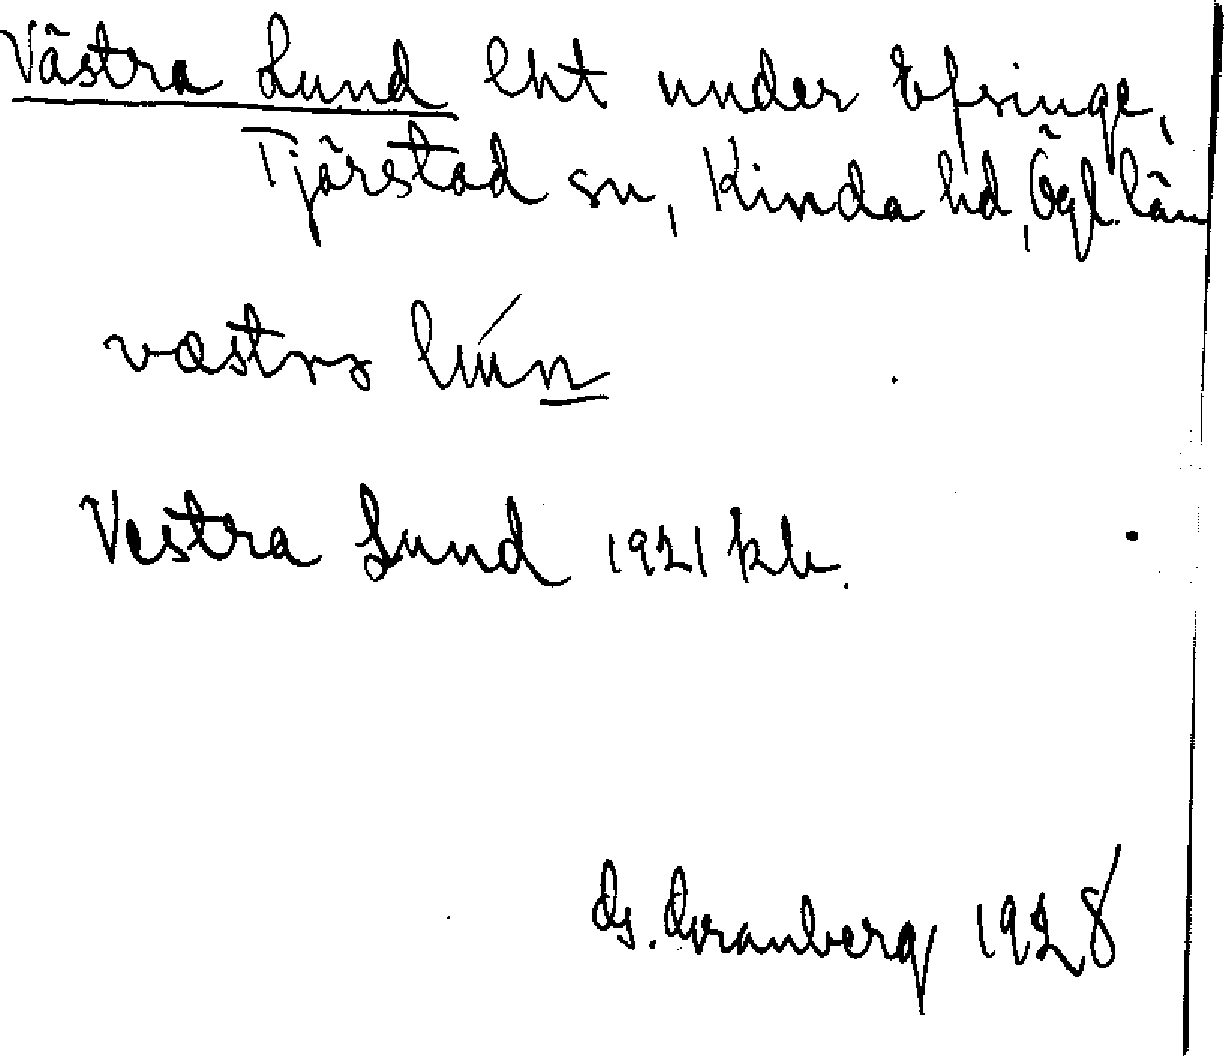 Västra Lund lht under Efringe,
Tjärstad sn, Kinda hd, Ögl. län
væstrɜ lúún
Vestra Lund 1921 kb.
G. Granberg 1928